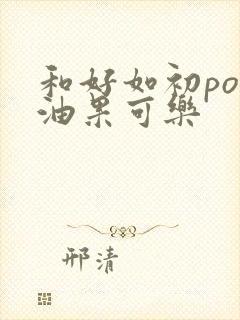 和好如初po
油果可樂
邢清